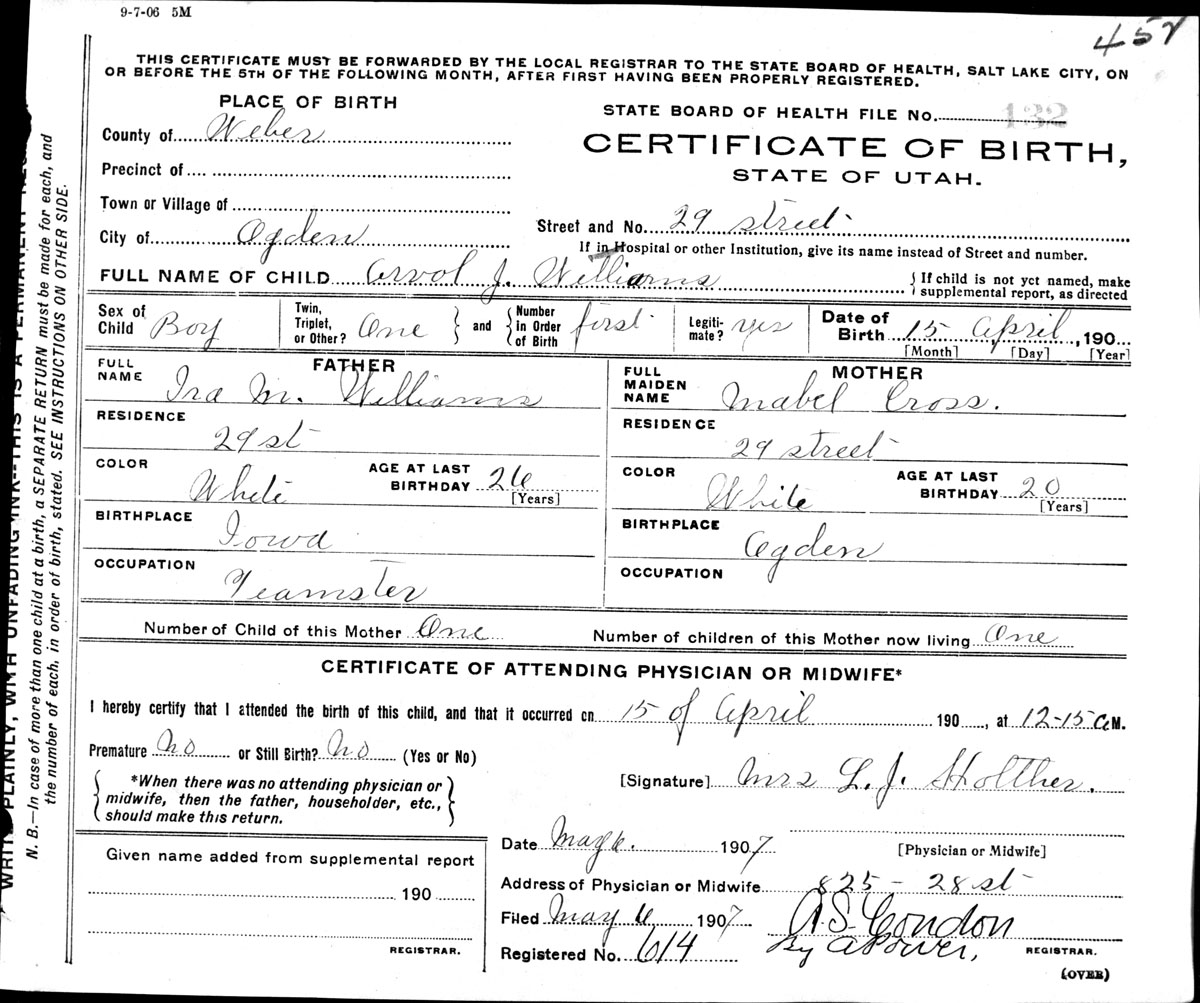 9-7-06 5M
452
THIS CERTIFICATE MUST BE FORWARDED BY THE LOCAL REGISTRAR TO THE STATE BOARD OF HEALTH, SALT LAKE CITY, ON
OR BEFORE THE 5TH OF THE FOLLOWING MONTH, AFTER FIRST HAVING BEEN PROPERLY REGISTERED.
PLACE OF BIRTH
STATE BOARD OF HEALTH FILE No. 132
County of Weber
CERTIFICATE OF BIRTH,
STATE OF UTAH.
Precinct of
Town or Village of
Street and No. 29 street
City of Ogden
If in Hospital or other Institution, give its name instead of Street and number.
FULL NAME OF CHILD Orvol J. Williams
{ If child is not yet named, make
supplemental report, as directed
Sex of Child Boy
Twin, Triplet, or Other? One } and { Number in Order of Birth first
Legiti-mate? yes
Date of Birth 15 April, 190
[Month] [Day] [Year]
FATHER
FULL NAME Ira M. Williams
RESIDENCE 29 st
COLOR White
AGE AT LAST BIRTHDAY 26
[Years]
BIRTHPLACE Iowa
OCCUPATION Teamster
MOTHER
FULL MAIDEN NAME Mabel Cross.
RESIDENCE 29 street
COLOR White
AGE AT LAST BIRTHDAY 20
[Years]
BIRTHPLACE Ogden
OCCUPATION
Number of Child of this Mother One
Number of children of this Mother now living One
CERTIFICATE OF ATTENDING PHYSICIAN OR MIDWIFE*
I hereby certify that I attended the birth of this child, and that it occurred on 15 of April 190, at 12-15 a M.
Premature No or Still Birth? No (Yes or No)
{ *When there was no attending physician or
midwife, then the father, householder, etc.,
should make this return. }
[Signature] Mrs L. J. Holther.
Date May 6. 1907
[Physician or Midwife]
Address of Physician or Midwife 825 - 28 st
Filed May 6 1907
A.S. Condon
Registered No. 614
By A Power,
REGISTRAR.
(OVER)
Given name added from supplemental report
190
REGISTRAR.
WRITE PLAINLY, WITH UNFADING INK--THIS IS A PERMANENT
N. B.—In case of more than one child at a birth, a SEPARATE RETURN must be made for each, and
the number of each, in order of birth, stated. SEE INSTRUCTIONS ON OTHER SIDE.